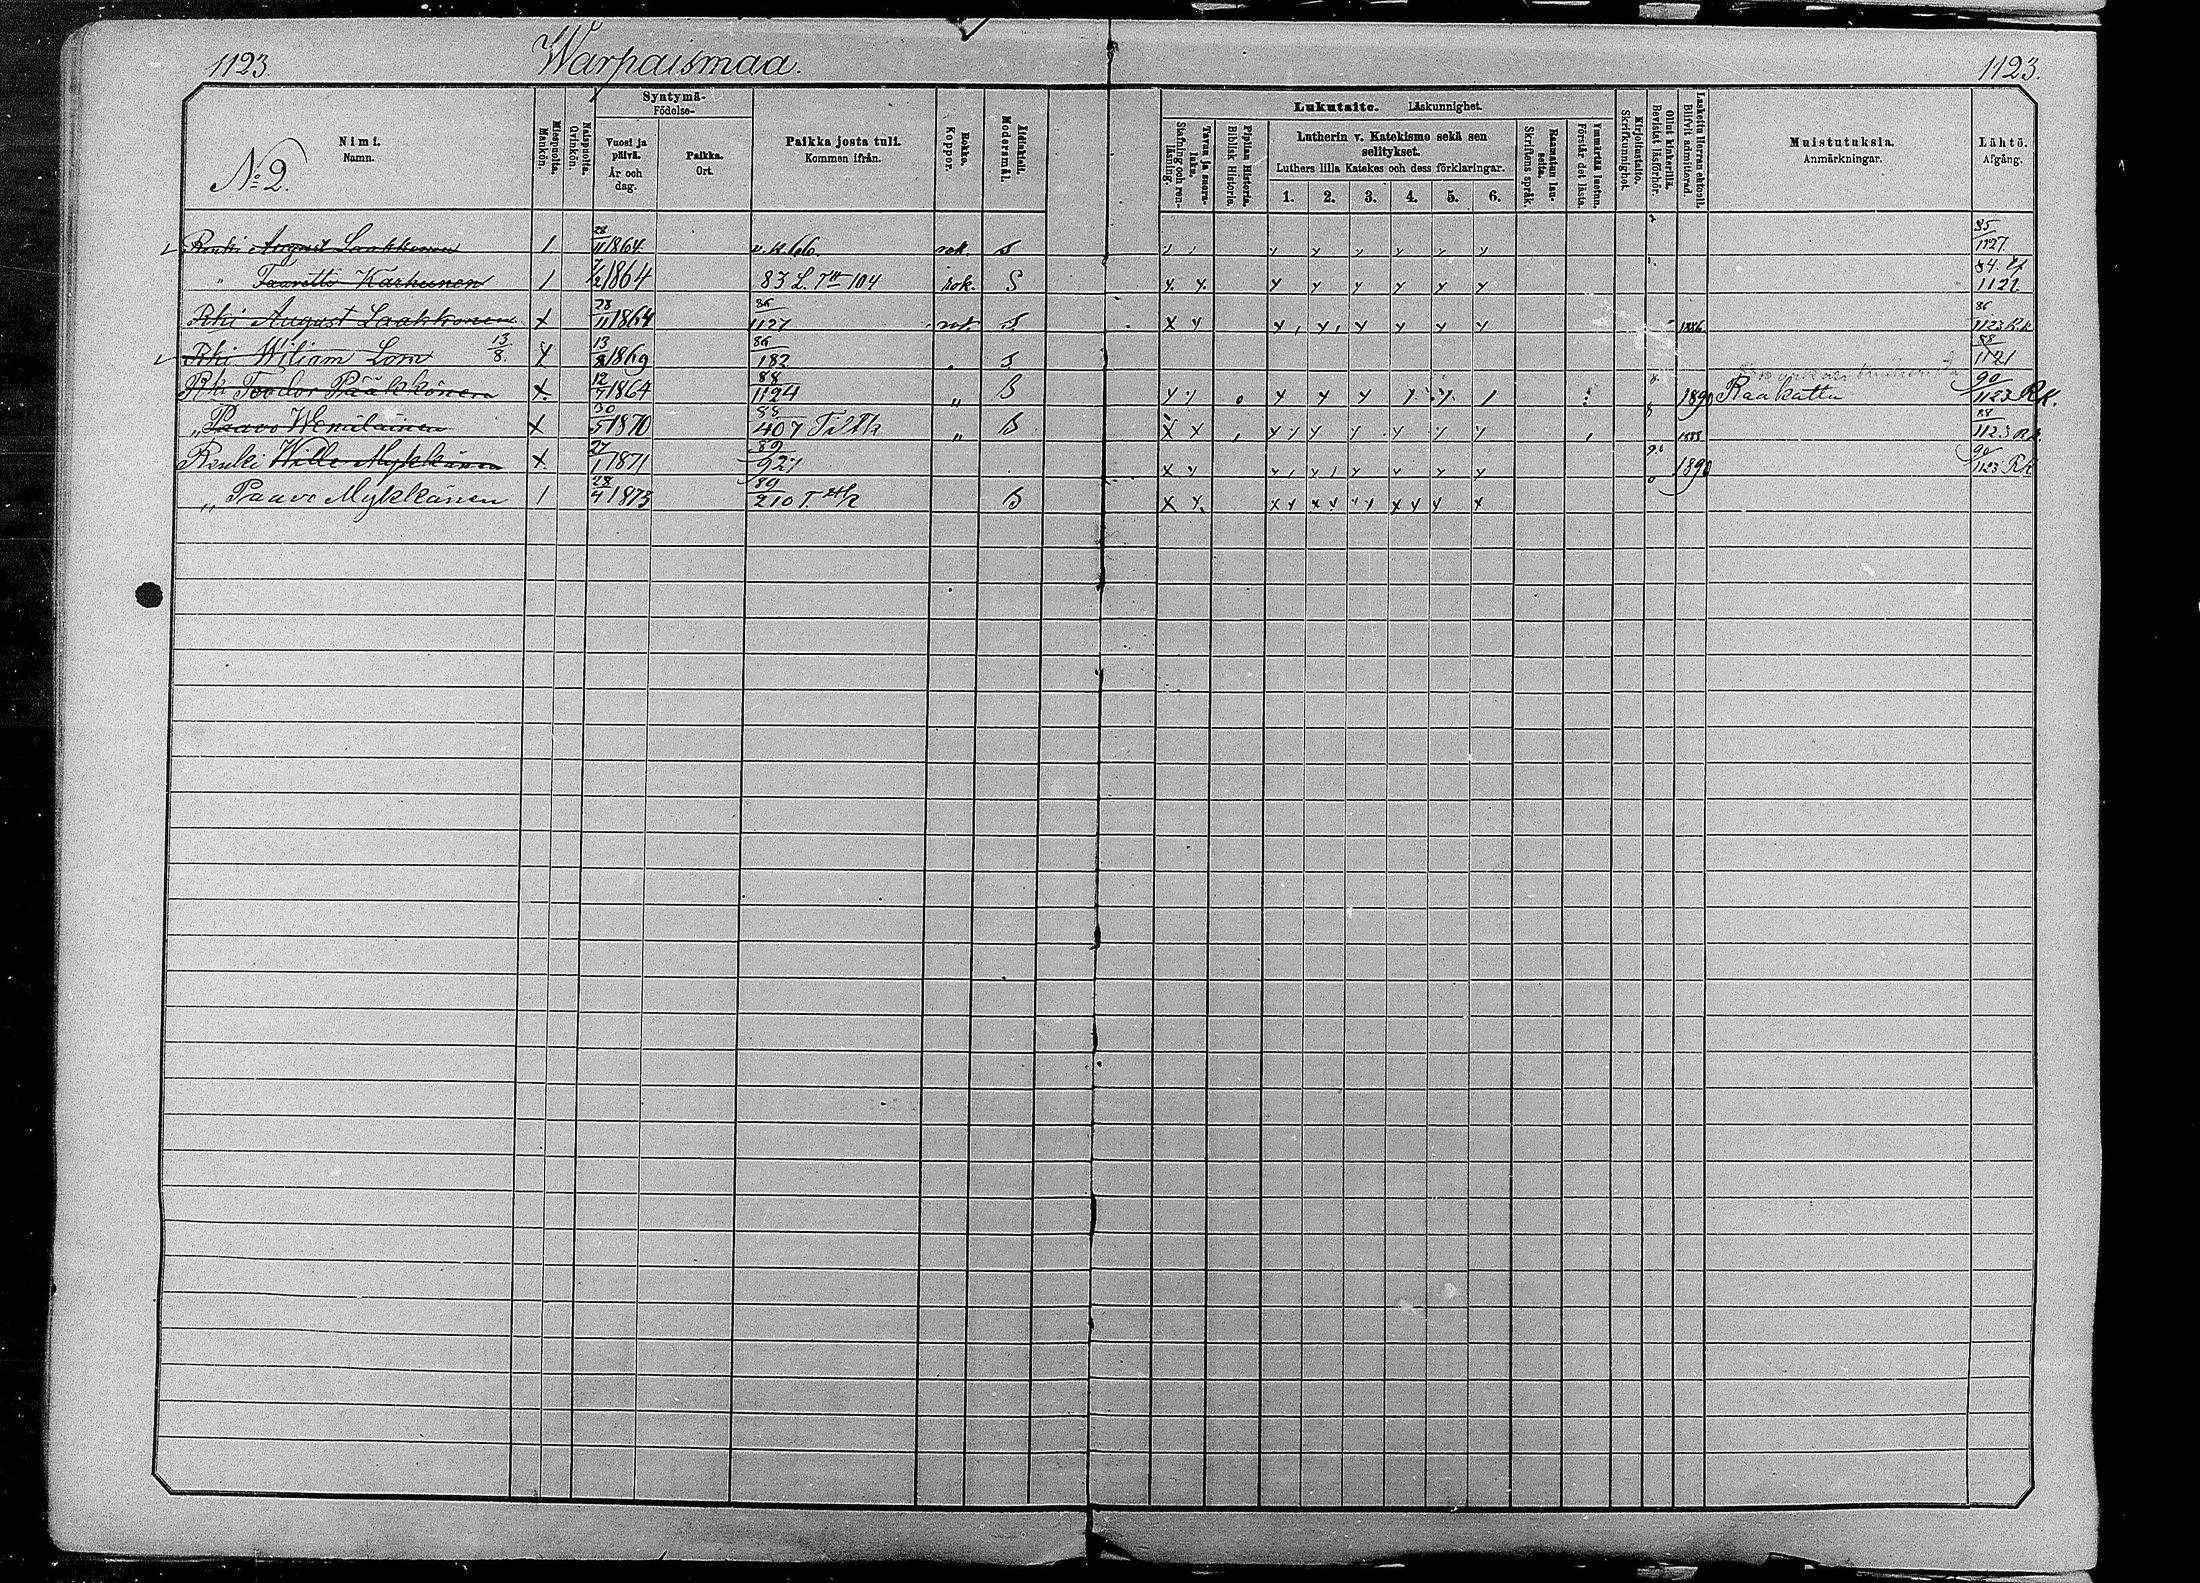 1123. Warpaismaa. 1123.
Nimi. Namn. No 2.
Miespuolia. Mankön.
Naispuolia. Qvinkön.
Syntymä- Födelse-
Vuosi ja päivä. År och dag.
Paikka. Ort.
Paikka josta tuli. Kommen ifrån.
Rokko. Koppor.
Äidinkieli. Modersmål.
Lukutaito. Läskunnighet.
Tavuu ja suora-luku. Stafning och ren-läsning.
Piplian Historia. Biblisk Historia.
Lutherin v. Katekismo sekä sen selitykset.
Luthers lilla Katekes och dess förklaringar.
1. 2. 3. 4. 5. 6.
Raamatun lauseita. Skriftens språk.
Ymmärtää luetun. Förstår det lästa.
Kirjoitustaito. Skrifkunnighet.
Ollut kinkerillä. Bevistat läsförhör.
Laskettu Herran ehtooll. Blifvit admitterad.
Muistutuksia. Anmärkningar.
Lähtö. Afgång.
Renki August Laakkonen 1. 28/11 1864 v.k. 66. rok. S 85/1127.
" Taavetti Karhunen 1 7/2 1864 83 L. 104 rok. S 84. 1121.
Rki August Laakkonen x 28/11 1864 86/1127 rok. S 1886 86/1123 Rk
Rki Wiliam Lom 13/8. x 13/8 1869 86/182 S 88/1121
Rki Teodor Pääkkönen x 12/7 1864 88/1124 " B 1890 Raakattu 90/1123 RK.
" Paavo Wenäläinen x 30/5 1870 88/407 " B 1888 88/1123 Rk.
Renki Wille Mykkänen x. 27/1 1871 89/927 90 1890 90/1123 RK
" Paavo Mykkänen 1 28/4 1873 89/210 B